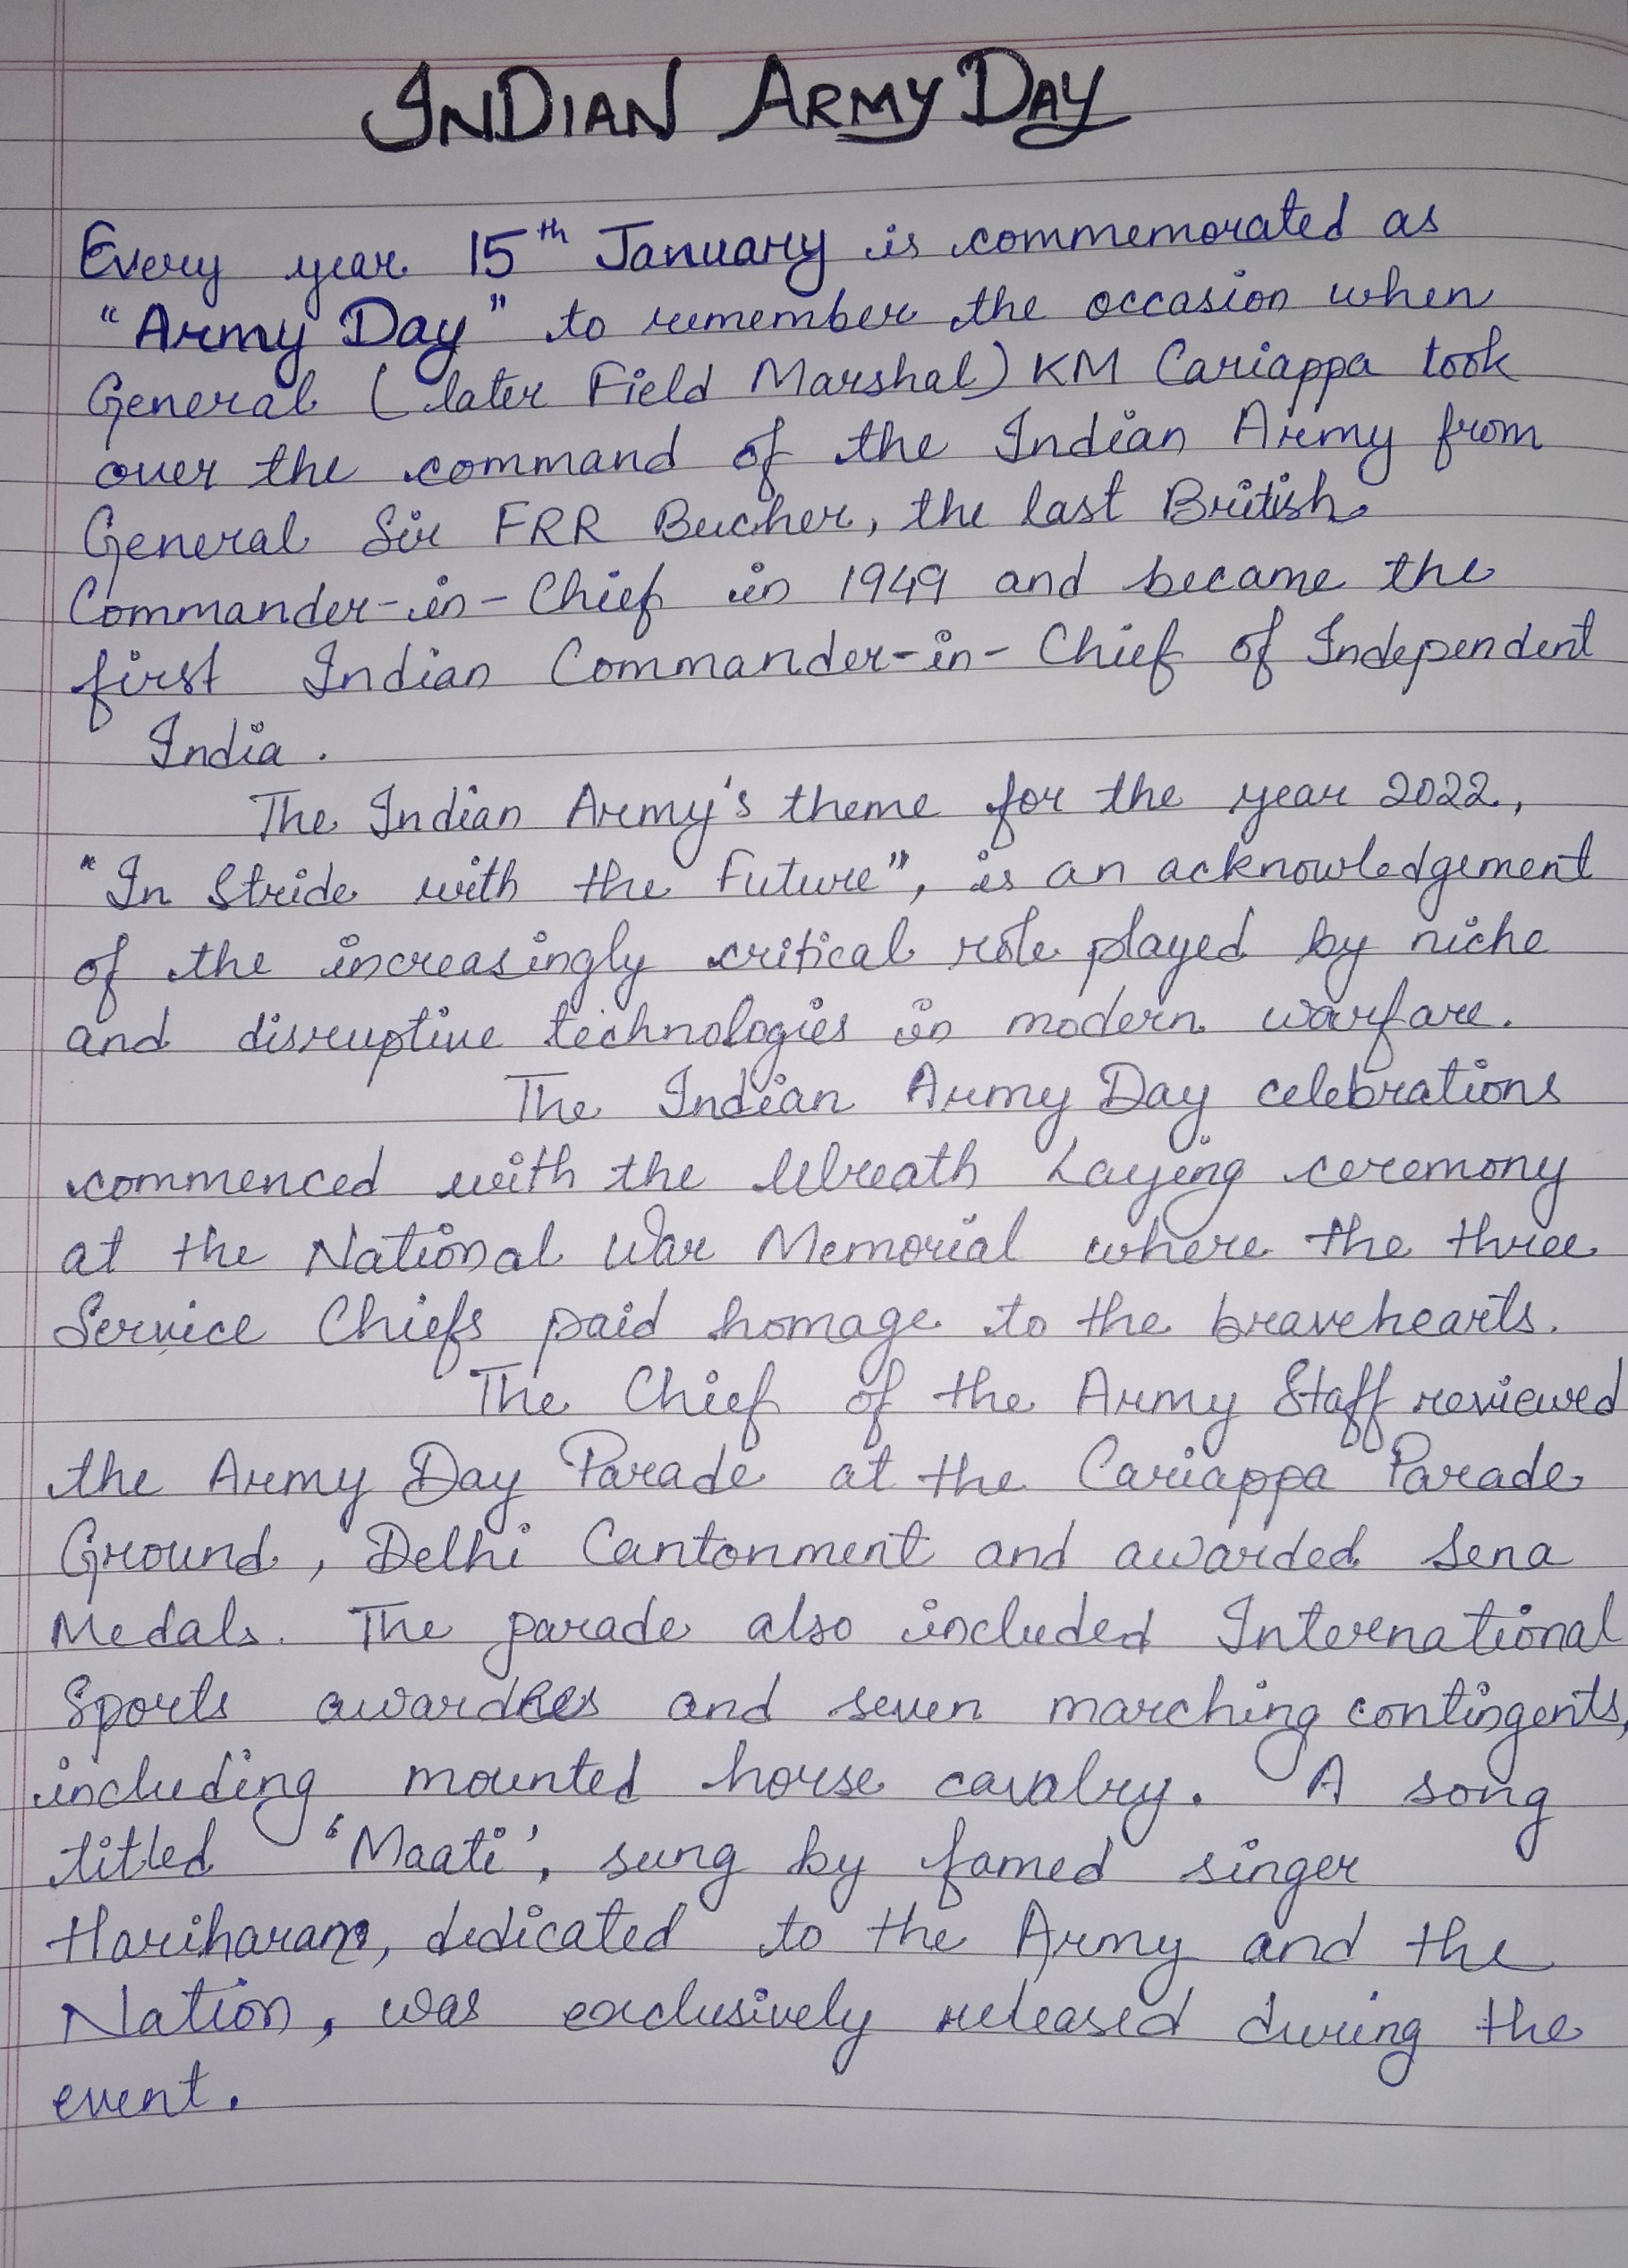 INDIAN ARMY DAY
Every year 15th January is commemorated as
"Army Day" to remember the occasion when
General (later Field Marshal) KM Cariappa took
over the command of the Indian Army from
General Sir FRR Bucher, the last British
Commander-in-Chief in 1949 and became the
first Indian Commander-in-Chief of Independent
India.
The Indian Army's theme for the year 2022,
"In Stride with the Future", is an acknowledgement
of the increasingly critical role played by niche
and disruptive technologies in modern warfare.
The Indian Army Day celebrations
commenced with the Wreath Laying ceremony
at the National War Memorial where the three
Service Chiefs paid homage to the bravehearts.
The Chief of the Army Staff reviewed
the Army Day Parade at the Cariappa Parade
Ground, Delhi Cantonment and awarded Sena
Medals. The parade also included International
Sports awardees and seven marching contingents,
including mounted horse cavalry. A song
titled 'Maati', sung by famed singer
Hariharan, dedicated to the Army and the
Nation, was exclusively released during the
event.